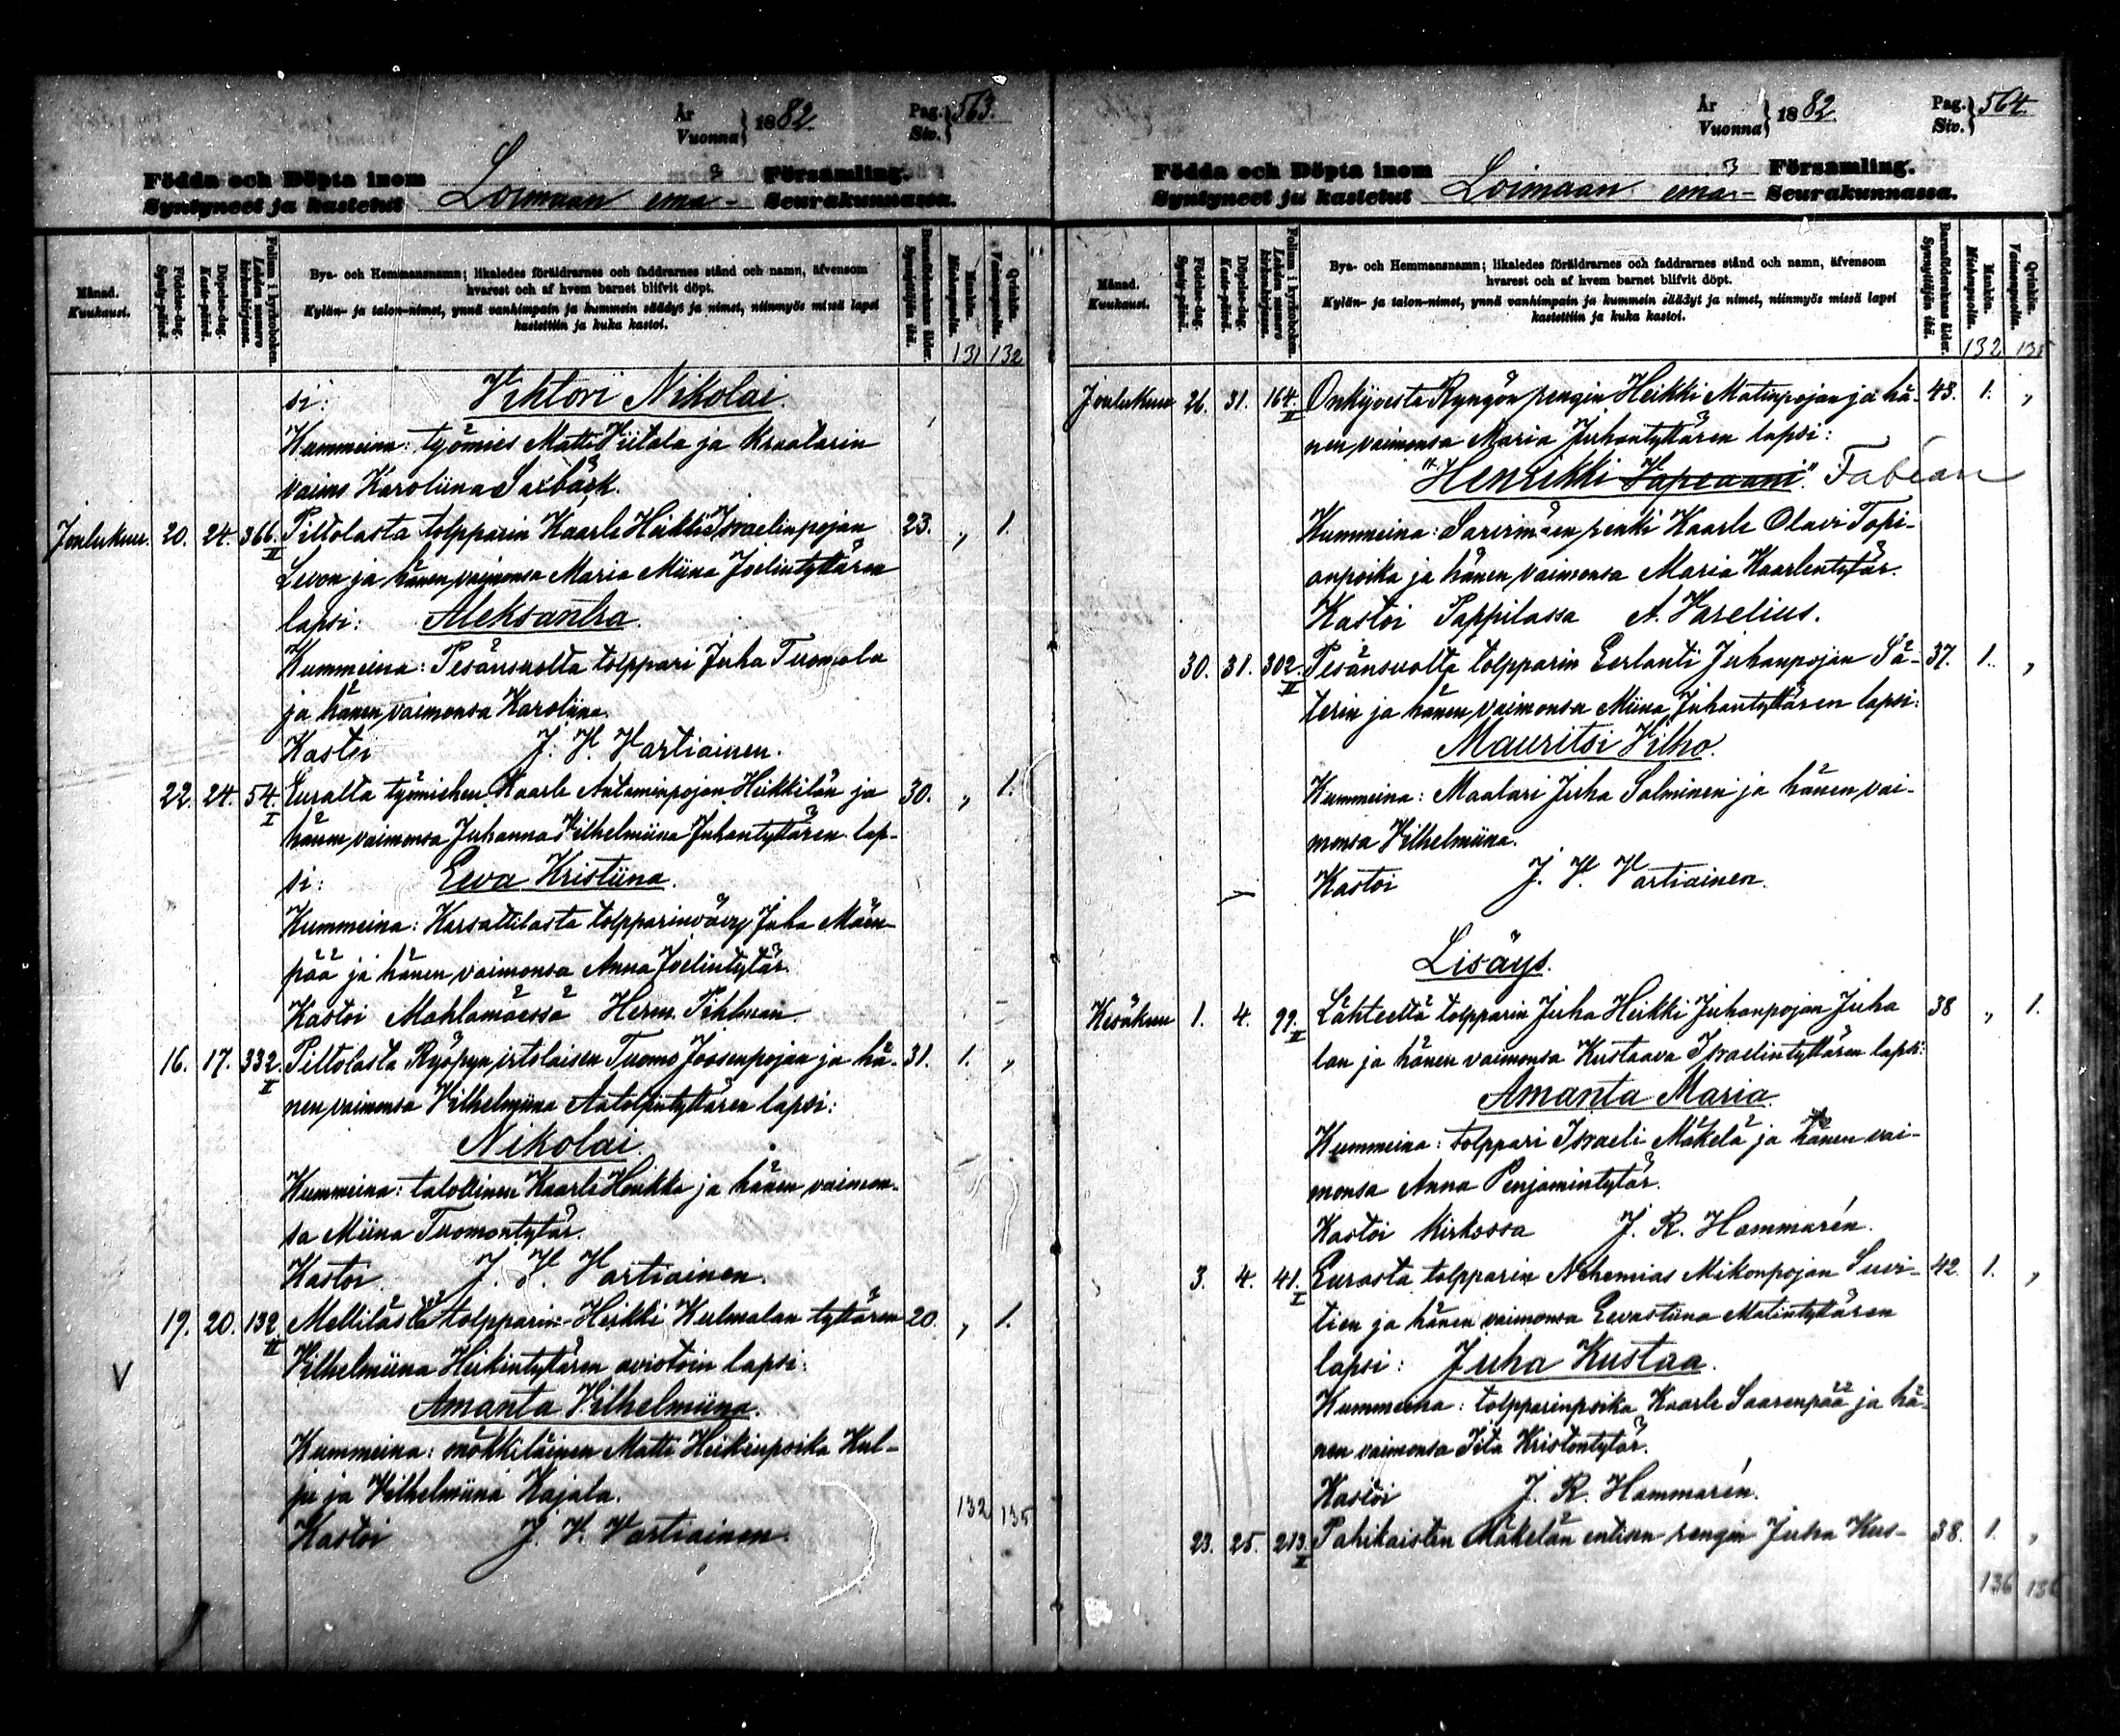 År
Vuonna } 1882.
Pag.
Siv. } 563.
Födda och Döpta inom Församling.
Syntyneet ja kastetut Loimaan emä- Seurakunnassa.
Månad.
Kuukausi.
Födelse-dag.
Synty-päivä.
Döpelse-dag.
Kaste-päivä.
Folium i kyrkoboken.
Lehden numero kirkonkirjassa.
Bya- och Hemmansnamn; likaledes föräldrarnes och faddrarnes stånd och namn, äfvensom
hvarest och af hvem barnet blifvit döpt.
Kylän- ja talon-nimet, ynnä vanhimpain ja kummein säädyt ja nimet, niinmyös missä lapsi
kastettiin ja kuka kastoi.
Barnaföderskans ålder.
Synnyttäjän ikä.
Mankön.
Miehenpuolia.
Qvinkön.
Vaimonpuolia.
131 132
si: Viktori Nikolai.
Kummeina: työmies Matti Viitala ja kraatarin
vaimo Karoliina Saxbäck.
Joulukuu. 20. 24. 366. II Piltolasta tolpparin Kaarle Heikki Israelinpojan 23. „ 1.
Levon ja hänen vaimonsa Maria Miina Joelintyttären
lapsi: Aleksantra.
Kummeina: Pesänsuolta tolppari Juha Tuomola
ja hänen vaimonsa Karoliina.
Kastoi J. V. Vartiainen.
22. 24. 54. I Euralta työmiehen Kaarle Antaminpojan Heikkilän ja 30. „ 1.
hänen vaimonsa Juhanna Vilhelmiina Juhantyttären lap-
si: Eeva Kristiina.
Kummeina: Karsattilasta tolpparinvävy Juha Mäen-
pää ja hänen vaimonsa Anna Joelintytär.
Kastoi Mahlamäessä Herm. Pihlman.
16. 17. 332. I Piltolasta Ryöpyn irtolaisen Tuomo Joosenpojan ja hä- 31. 1. „
nen vaimonsa Vilhelmiina Aatolfintyttären lapsi:
Nikolai.
Kummeina: talollinen Kaarle Heikki ja hänen vaimon-
sa Miina Tuomontytär.
Kastoi J. V. Vartiainen.
19. 20. 132. II Mellilästä tolpparin Heikki Kulmalan tyttären 20. „ 1.
V Vilhelmiina Heikintyttären aviotoin lapsi:
Amanta Vilhelmiina.
Kummeina: mökkiläinen Matti Heikinpoika Kul-
ju ja Vilhelmiina Kajala.
Kastoi J. V. Vartiainen.
132 135
År
Vuonna } 1882.
Pag.
Siv. } 564.
Födda och Döpta inom Församling.
Syntyneet ja kastetut Loimaan emä- Seurakunnassa.
Månad.
Kuukausi.
Födelse-dag.
Synty-päivä.
Döpelse-dag.
Kaste-päivä.
Folium i kyrkoboken.
Lehden numero kirkonkirjassa.
Bya- och Hemmansnamn; likaledes föräldrarnes och faddrarnes stånd och namn, äfvensom
hvarest och af hvem barnet blifvit döpt.
Kylän- ja talon-nimet, ynnä vanhimpain ja kummein säädyt ja nimet, niinmyös missä lapsi
kastettiin ja kuka kastoi.
Barnaföderskans ålder.
Synnyttäjän ikä.
Mankön.
Miehenpuolia.
Qvinkön.
Vaimonpuolia.
132 135
Joulukuu 26. 31. 164. II Onkijoesta Ryngön rengin Heikki Matinpojan ja hä- 43. 1. „
nen vaimonsa Maria Juhantyttären lapsi:
"Henrikki Vapeaani". Fabian
Kummeina: Sarrimäen renki Kaarle Olavi Topi-
anpoika ja hänen vaimonsa Maria Kaarlentytär.
Kastoi Pappilassa A. Varelius.
30. 31. 302. II Pesänsuolta tolpparin Eerlanti Juhanpojan Sä- 37. 1. „
terin ja hänen vaimonsa Miina Juhantyttären lapsi:
Mauritsi Vilho.
Kummeina: Maalari Juha Salminen ja hänen vai-
monsa Vilhelmiina.
Kastoi J. V. Vartiainen.
Lisäys.
Kesäkuu 1. 4. 99. II Lähteeltä tolpparin Juha Heikki Juhanpojan Juha 38 „ 1.
lan ja hänen vaimonsa Kustaava Israelintyttären lapsi:
Amanta Maria.
Kummeina: tolppari Israeli Mäkelä ja hänen vai-
monsa Anna Penjamintytär.
Kastoi kirkossa J. R. Hammarén.
3. 4. 41. I Eurasta tolpparin Nehemias Mikonpojan Suvi- 42. 1. „
tien ja hänen vaimonsa Eevastiina Matintyttären
lapsi: Juha Kustaa.
Kummeina: tolpparinpoika Kaarle Saarenpää ja hä-
nen vaimonsa Iita Kristontytär.
Kastoi J. R. Hammarén.
23. 25. 213. I Pahikaisten Mäkelän entisen rengin Juha Kus- 38. 1. „
136 136